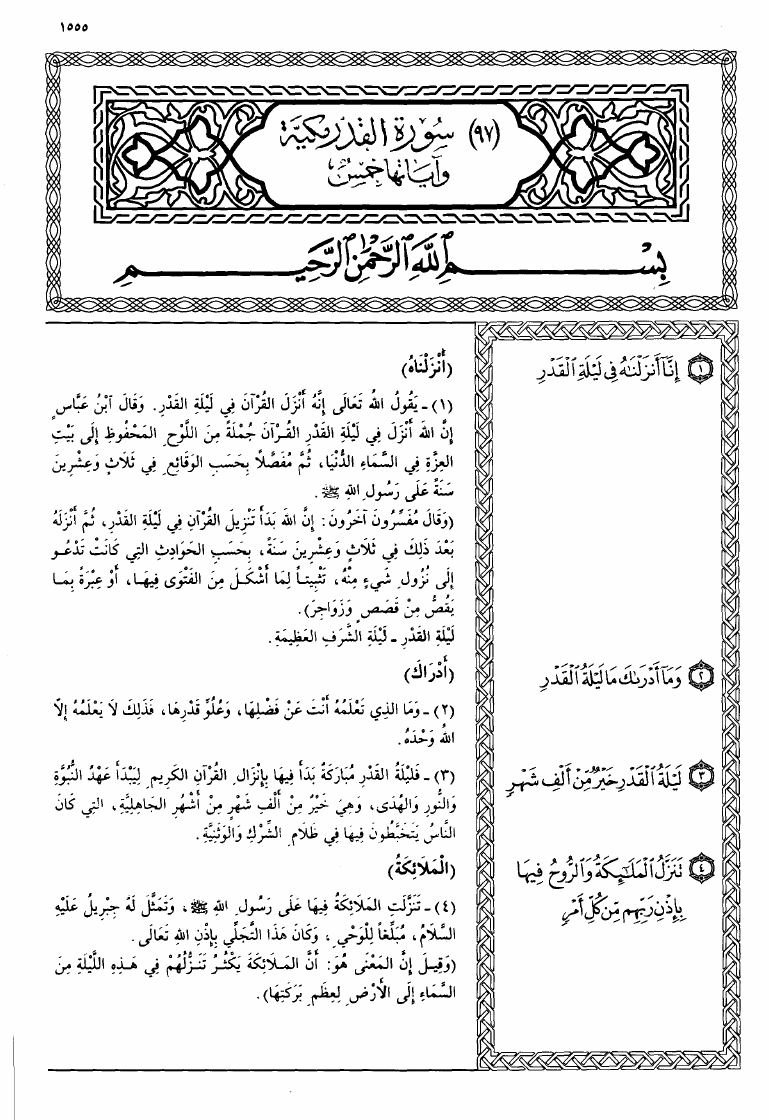 ١٥٥٥
(٩٧) سُورَة القَدْر مكيَّة
وَآيَاتها خَمْسٌ
بِسْمِ ٱللَّهِ ٱلرَّحْمَٰنِ ٱلرَّحِيمِ
١ إِنَّآ أَنزَلْنَٰهُ فِى لَيْلَةِ ٱلْقَدْرِ
٢ وَمَآ أَدْرَىٰكَ مَا لَيْلَةُ ٱلْقَدْرِ
٣ لَيْلَةُ ٱلْقَدْرِ خَيْرٌ مِّنْ أَلْفِ شَهْرٍ
٤ تَنَزَّلُ ٱلْمَلَٰٓئِكَةُ وَٱلرُّوحُ فِيهَا
بِإِذْنِ رَبِّهِم مِّن كُلِّ أَمْرٍ
(أَنْزَلْنَاهُ)
(١) - يَقُولُ اللهُ تَعَالَى إِنَّهُ أَنْزَلَ القُرْآنَ فِي لَيْلَةِ القَدْرِ. وَقَالَ آبْنُ عَبَّاسٍ
إِنَّ اللهَ أَنْزَلَ فِي لَيْلَةِ القَدْرِ القُرْآنَ جُمْلَةً مِنَ اللَّوْحِ المَحْفُوظِ إِلَى بَيْتِ
العِزَّةِ فِي السَّمَاءِ الدُّنْيَا، ثُمَّ مُفَصَّلاً بِحَسَبِ الوَقَائِعِ فِي ثَلاثٍ وَعِشْرِينَ
سَنَةً عَلَى رَسُولِ اللهِ ﷺ.
(وَقَالَ مُفَسِّرُونَ آخَرُونَ: إِنَّ اللهَ بَدَأَ تَنْزِيلَ القُرْآنِ فِي لَيْلَةِ القَدْرِ، ثُمَّ أَنْزَلَهُ
بَعْدَ ذَلِكَ فِي ثَلاثٍ وَعِشْرِينَ سَنَةً، بِحَسَبِ الحَوَادِثِ التِي كَانَتْ تَدْعُو
إِلَى نُزُولِ شَيْءٍ مِنْهُ، تَثْبِيتاً لِمَا أَشْكَلَ مِنَ الفَتْوَى فِيهَا، أَوْ عِبْرَةً بِمَا
يَقُصُّ مِنْ قَصَصٍ وَزَوَاجِرَ).
لَيْلَةِ القَدْرِ - لَيْلَةِ الشَّرَفِ العَظِيمَةِ.
(أَدْرَاكَ)
(٢) - وَمَا الذِي تَعْلَمُهُ أَنْتَ عَنْ فَضْلِهَا، وَعُلُوِّ قَدْرِهَا، فَذَلِكَ لاَ يَعْلَمُهُ إِلاَّ
اللهُ وَحْدَهُ.
(٣) - فَلَيْلَةُ القَدْرِ مُبَارَكَةٌ بَدَأَ فِيهَا بِإِنْزَالِ القُرْآنِ الكَرِيمِ لِيَبْدَأَ عَهْدُ النُّبُوَّةِ
وَالنُّورِ وَالهُدَى، وَهِيَ خَيْرٌ مِنْ أَلْفِ شَهْرٍ مِنْ أَشْهُرِ الجَاهِلِيَّةِ، التِي كَانَ
النَّاسُ يَتَخَبَّطُونَ فِيهَا فِي ظَلاَمِ الشِّرْكِ وَالوَثَنِيَّةِ.
(الْمَلاَئِكَةُ)
(٤) - تَنَزَّلَتِ المَلاَئِكَةُ فِيهَا عَلَى رَسُولِ اللهِ ﷺ، وَتَمَثَّلَ لَهُ جِبْرِيلُ عَلَيْهِ
السَّلاَمُ، مُبَلِّغاً لِلْوَحْيِ، وَكَانَ هَذَا التَّجَلِّي بِإِذْنِ اللهِ تَعَالَى.
(وَقِيلَ إِنَّ المَعْنَى هُوَ: أَنَّ المَلاَئِكَةَ يَكْثُرُ تَنَزُّلُهُمْ فِي هَذِهِ اللَّيْلَةِ مِنَ
السَّمَاءِ إِلَى الأَرْضِ لِعِظَمِ بَرَكَتِهَا).